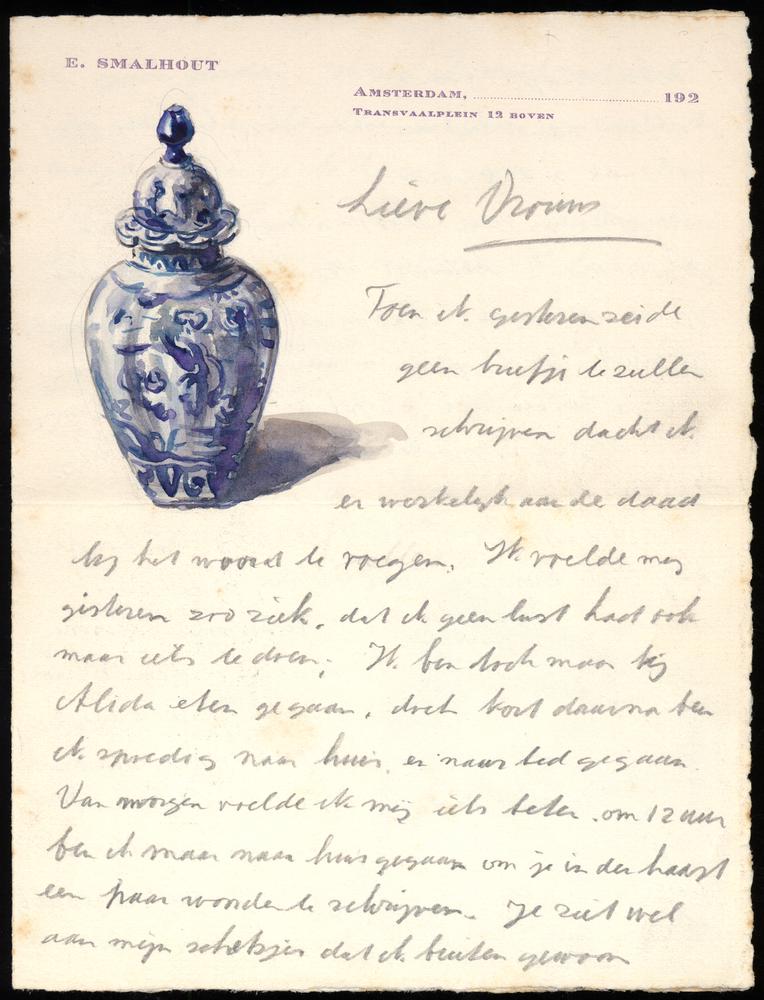 E. SMALHOUT
AMSTERDAM, 192
TRANSVAALPLEIN 12 BOVEN
Lieve Vrouw
Toen ik gisteren zeide
geen briefje te zullen
schrijven dacht ik
er werkelijk aan de daad
bij het woord te voegen. Ik voelde mij
gisteren zoo ziek, dat ik geen lust had ook
maar iets te doen. Ik ben toch maar bij
Alida eten gegaan, doch kort daarna ben
ik spoedig naar huis, en naar bed gegaan.
Van morgen voelde ik mij iets beter. om 12 uur
ben ik maar naar huis gegaan om je in der haast
een paar woorden te schrijven. Je ziet wel
aan mijn schetsjes dat ik buiten gewoon